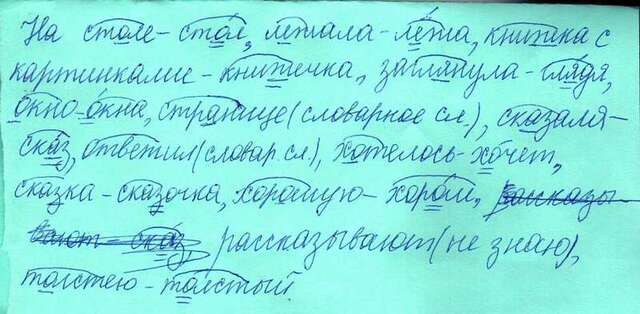 На столе - стол, летала - лёта, книжка с
картинками - книжечка, заглянула - глядя,
окно - окна, странице (словарное сл.), сказала -
сказ, ответил (словар. сл.), хотелось - хочет,
сказка - сказочка, хорошую - хорош, рассказы-
вают - сказ рассказывают (не знаю),
толстею - толстый.